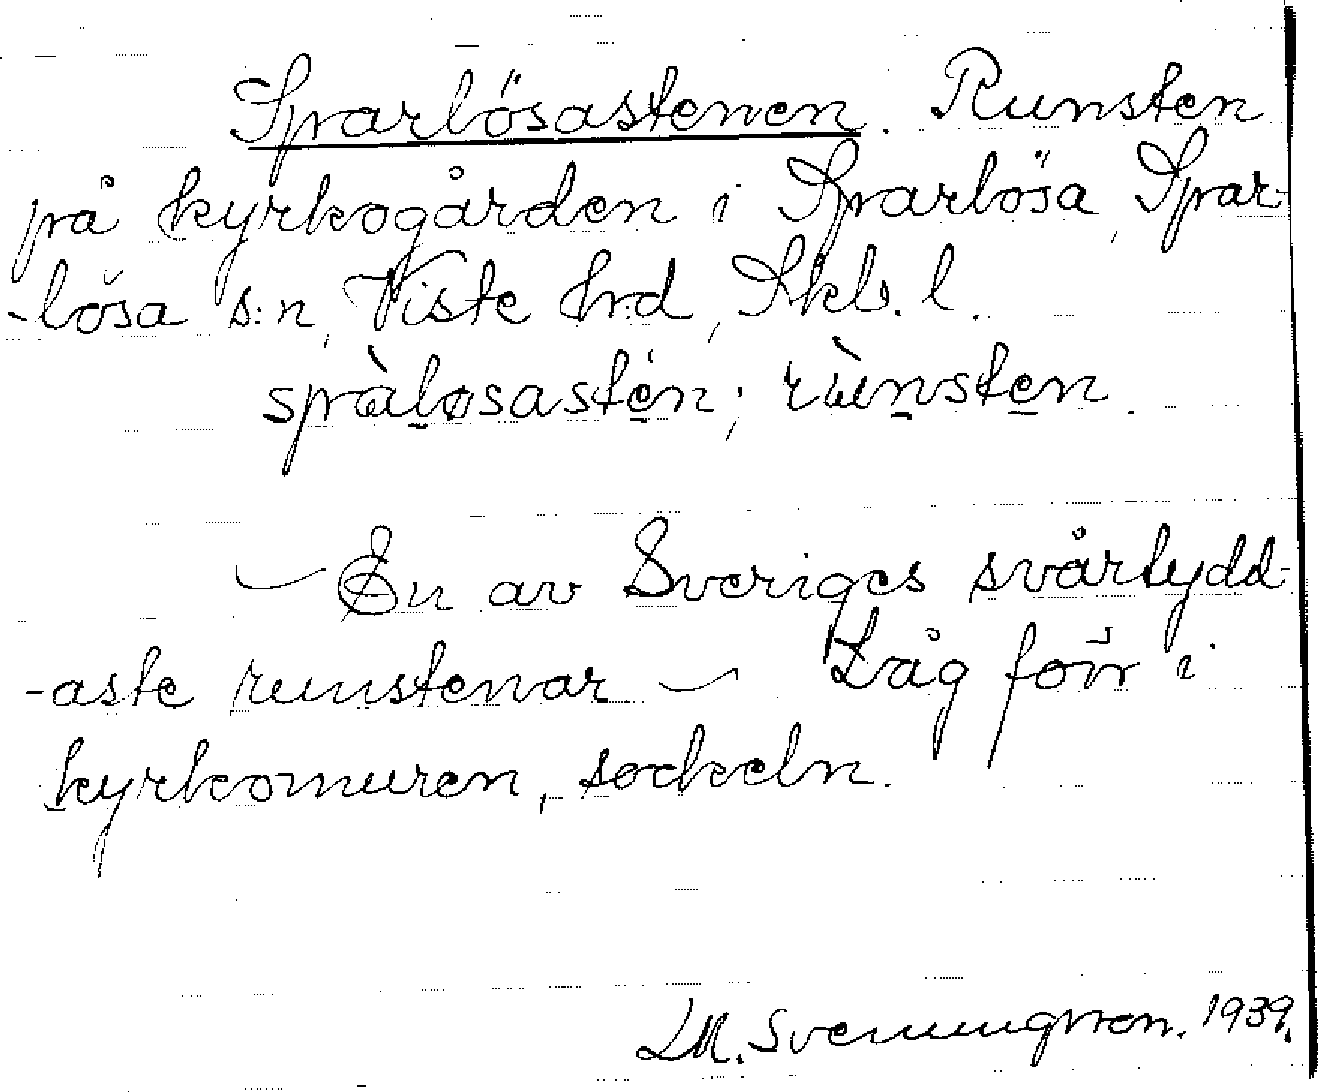 Sparlösastenen. Runsten
på kyrkogården i Sparlösa, Spar-
-lösa s:n, Viste hrd, Skb. l.
spàlosastén; rùnsten.
— En av Sveriges svårtydd-
-aste runstenar — Låg förr i
kyrkomuren, sockeln.
LM. Svenungsson. 1939.